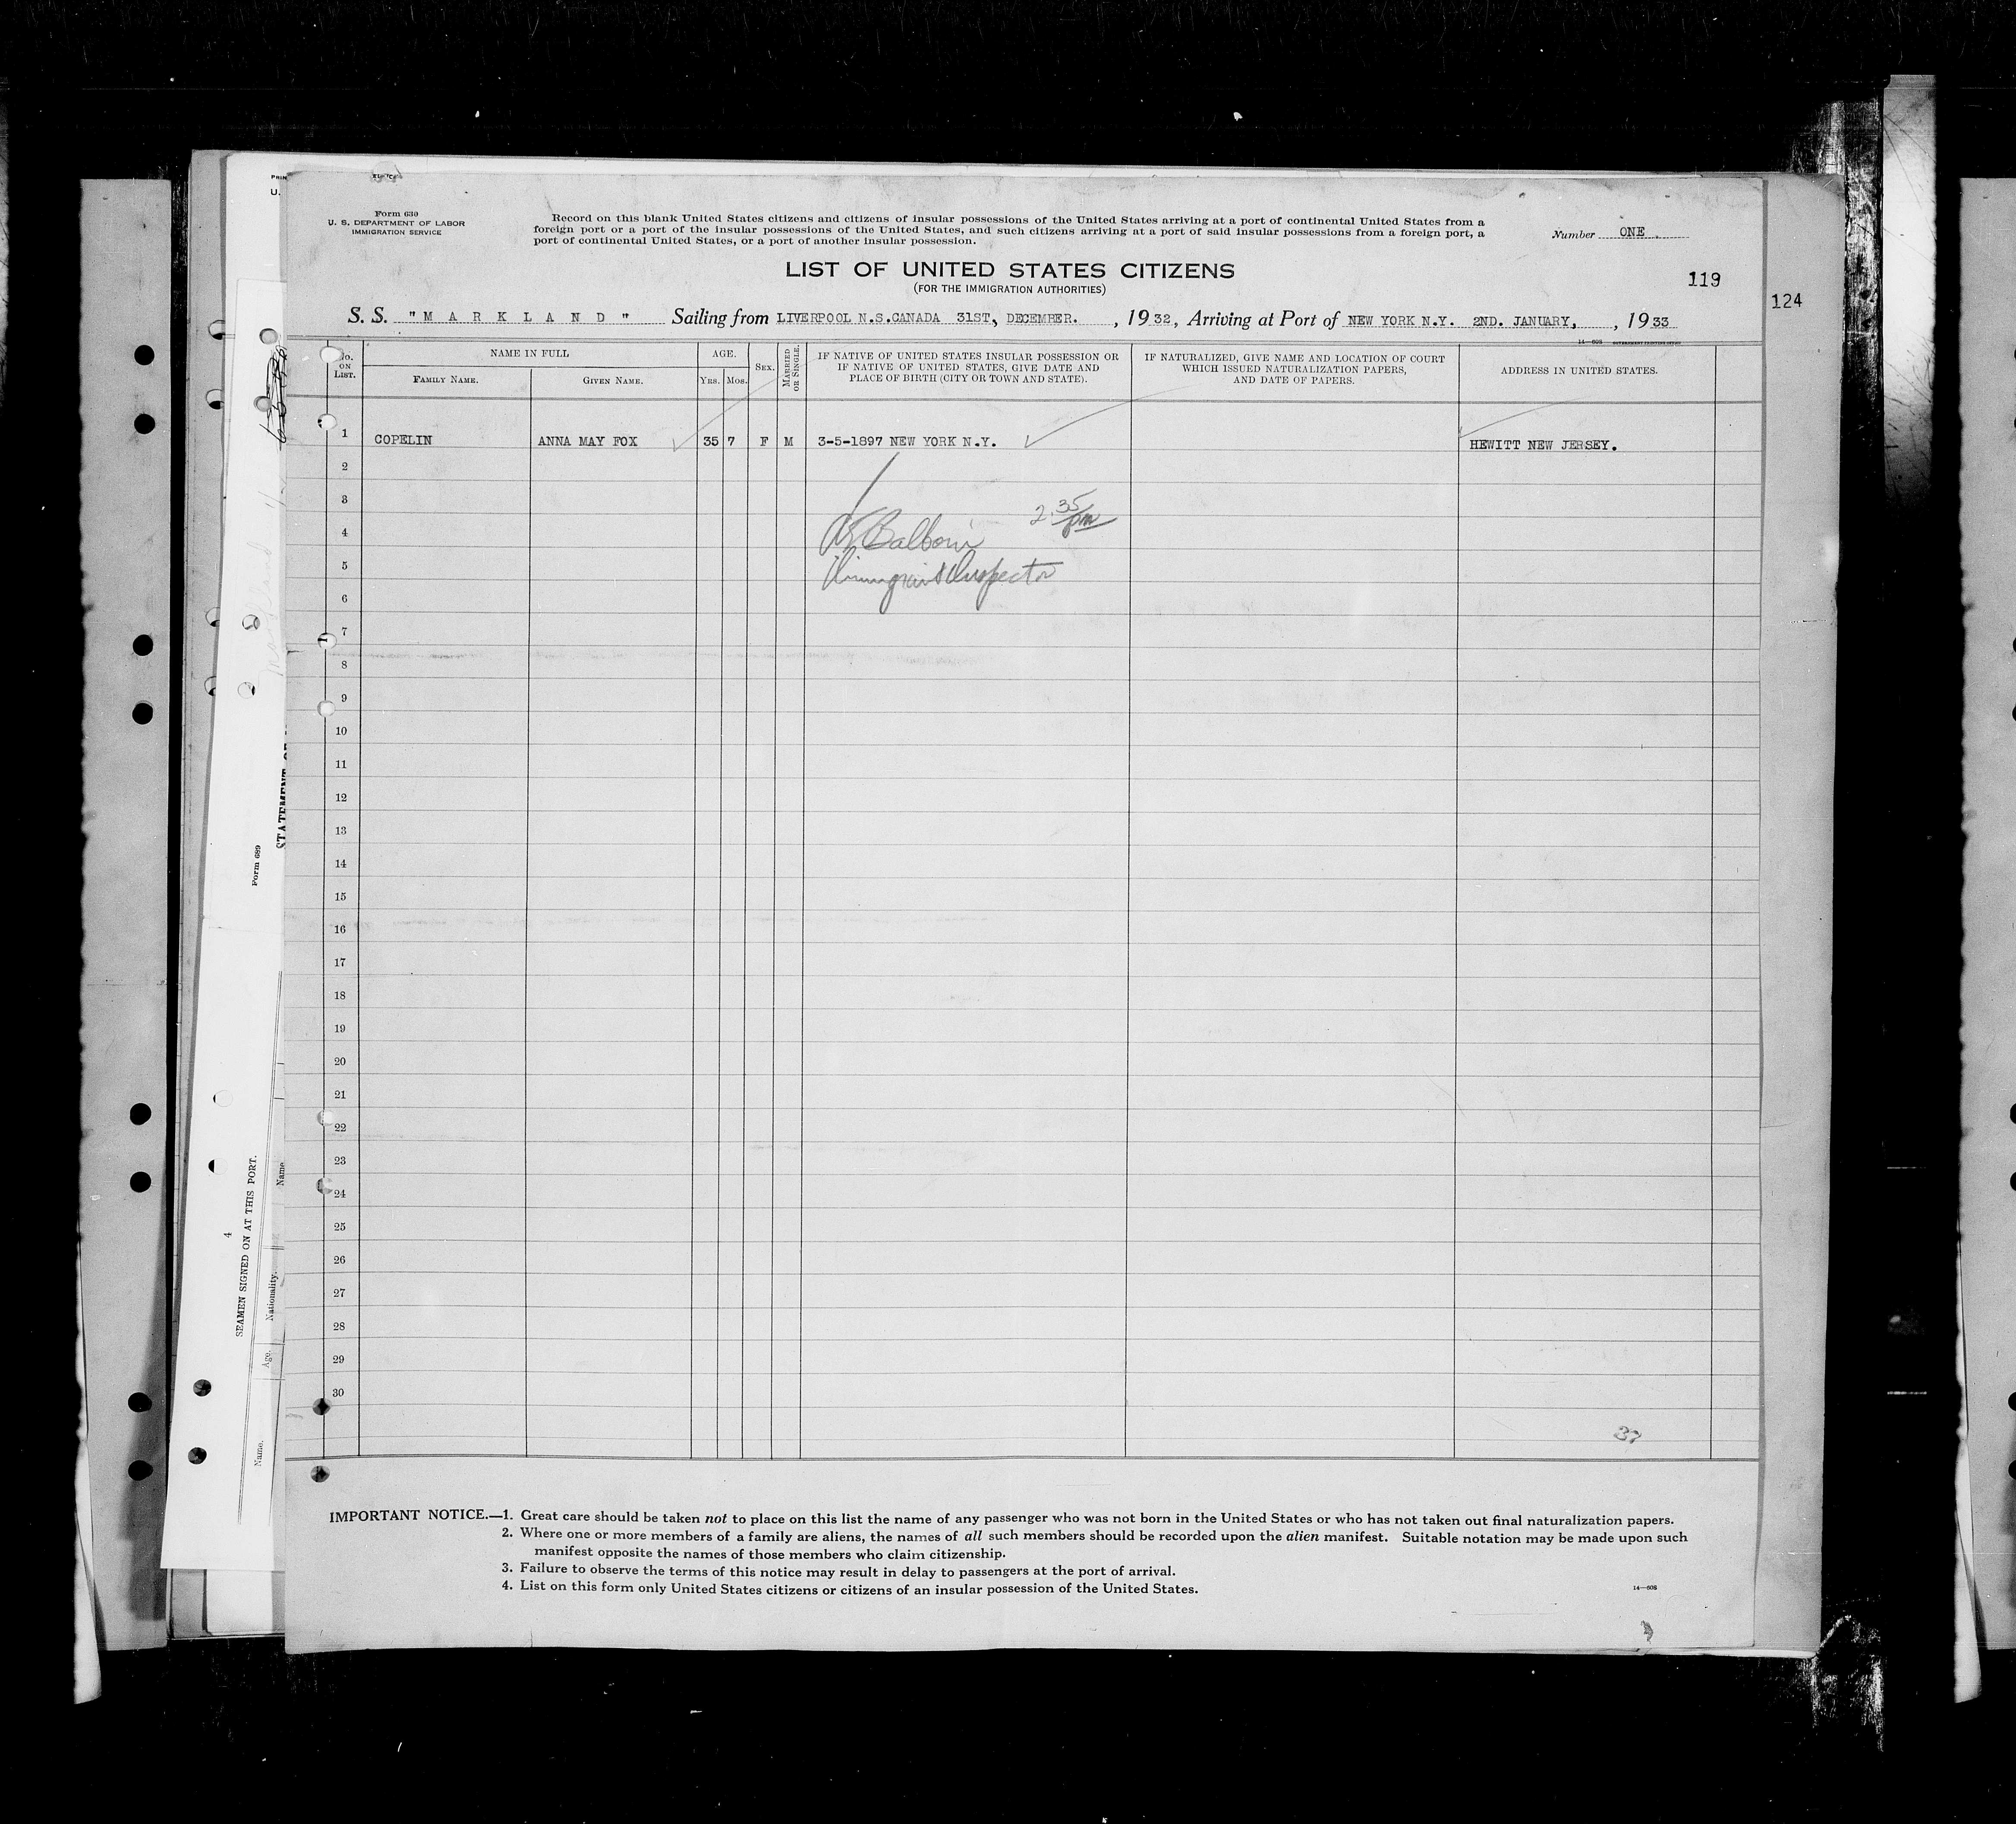 Form 630
U. S. DEPARTMENT OF LABOR
IMMIGRATION SERVICE
Record on this blank United States citizens and citizens of insular possessions of the United States arriving at a port of continental United States from a
foreign port or a port of the insular possessions of the United States, and such citizens arriving at a port of said insular possessions from a foreign port, a
port of continental United States, or a port of another insular possession.
Number ONE
LIST OF UNITED STATES CITIZENS
(FOR THE IMMIGRATION AUTHORITIES)
119
124
S. S. "M A R K L A N D" Sailing from LIVERPOOL N.S.CANADA 31ST, DECEMBER. , 1932, Arriving at Port of NEW YORK N.Y. 2ND. JANUARY, , 1933
14—608
No. ON LIST.
NAME IN FULL
FAMILY NAME.
GIVEN NAME.
AGE.
YRS.
MOS.
SEX.
MARRIED OR SINGLE.
IF NATIVE OF UNITED STATES INSULAR POSSESSION OR
IF NATIVE OF UNITED STATES, GIVE DATE AND
PLACE OF BIRTH (CITY OR TOWN AND STATE).
IF NATURALIZED, GIVE NAME AND LOCATION OF COURT
WHICH ISSUED NATURALIZATION PAPERS,
AND DATE OF PAPERS.
ADDRESS IN UNITED STATES.
1 COPELIN ANNA MAY FOX 35 7 F M 3-5-1897 NEW YORK N.Y. HEWITT NEW JERSEY.
2
3
2.35 pm
4
5
Inspector
6
7
8
9
10
11
12
13
14
15
16
17
18
19
20
21
22
23
24
25
26
27
28
29
30
37
IMPORTANT NOTICE.—1. Great care should be taken not to place on this list the name of any passenger who was not born in the United States or who has not taken out final naturalization papers.
2. Where one or more members of a family are aliens, the names of all such members should be recorded upon the alien manifest. Suitable notation may be made upon such
manifest opposite the names of those members who claim citizenship.
3. Failure to observe the terms of this notice may result in delay to passengers at the port of arrival.
4. List on this form only United States citizens or citizens of an insular possession of the United States.
14—608
Form 689
STATEMENT OF
4
SEAMEN SIGNED ON AT THIS PORT.
Name. Age. Nationality. Name